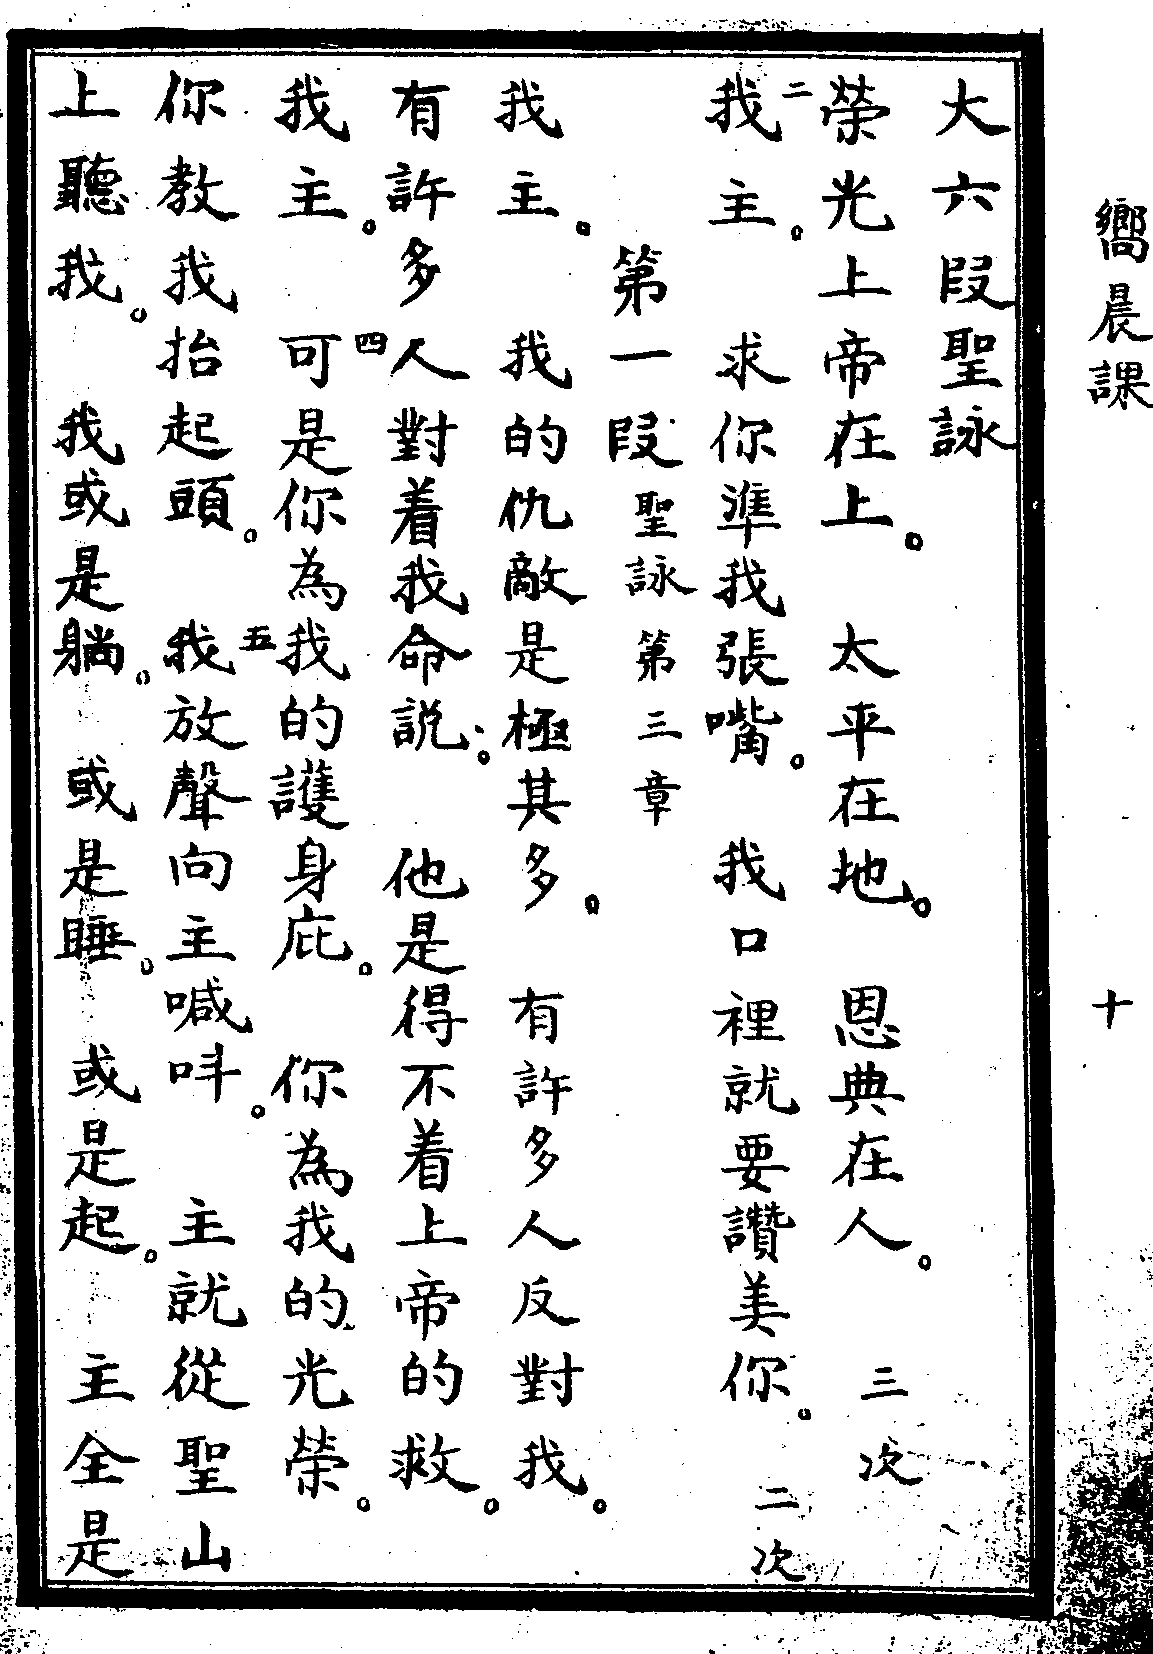 嚮晨課
十
大六段聖詠
榮光上帝在上。太平在地。恩典在人。三次
二我主。求你準我張嘴。我口裡就要讚美你。二次
第一段聖詠第三章
我主。我的仇敵是極其多。有許多人反對我。
有許多人對着我命說。他是得不着上帝的救。
我主。四可是你為我的護身庇。你為我的光榮。
你教我抬起頭。五我放聲向主喊呌。主就從聖山
上聽我。我或是躺。或是睡。或是起。主全是